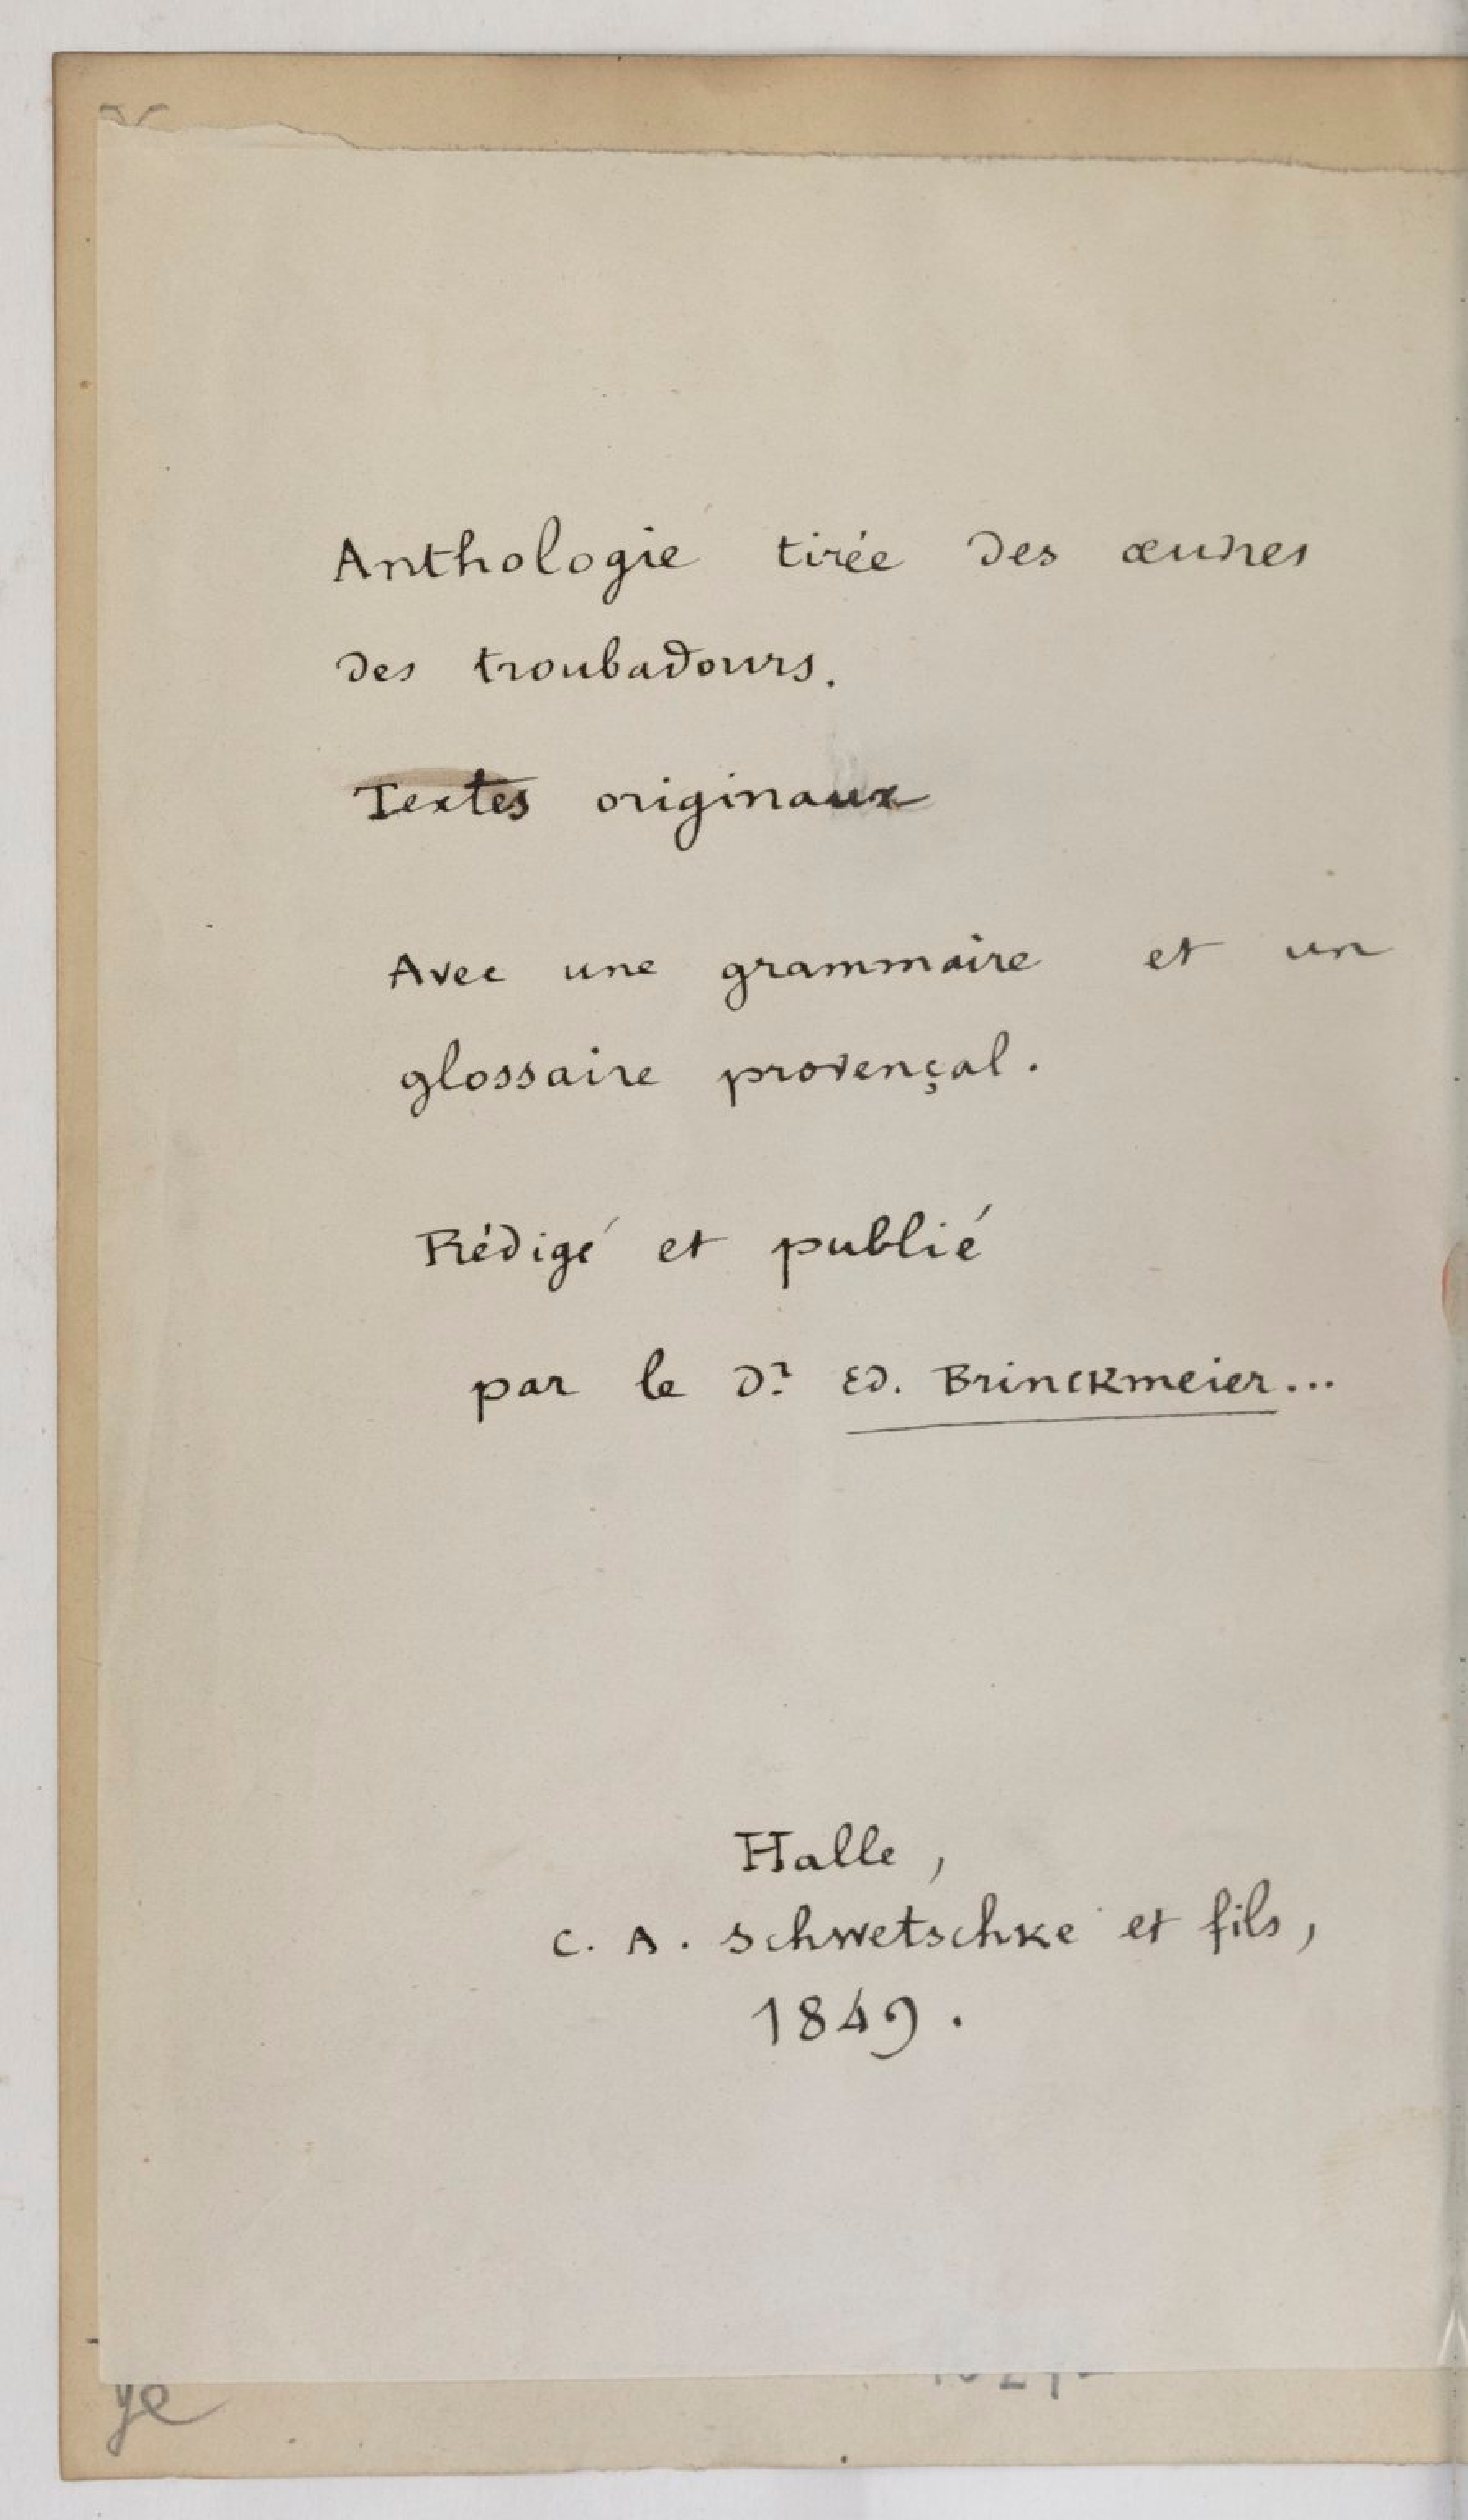 Anthologie tirée des œuvres
des troubadours.
Textes originaux
Avec une grammaire et un
glossaire provençal.
Rédigé et publié
par le Dr Ed. Brinckmeier...
Halle,
C. A. Schwetschke et fils,
1849.
ye